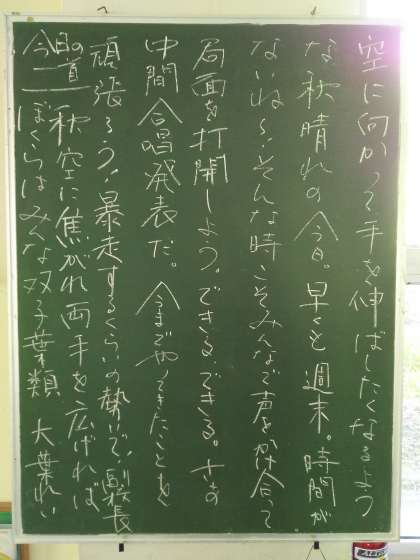 空に向かって手を伸ばしたくなるよう
な秋晴れの今日。早くも週末。時間が
ないね〜。そんな時こそみんなで声をかけ合って
局面を打開しよう。できる、できる。さあ
中間合唱発表だ。今までやってきたことを
頑張ろう!暴走するくらいの勢いで!副級長
今日の一首 秋空に焦がれ両手を広げれば
ぼくらはみんな双子葉類 大葉れい